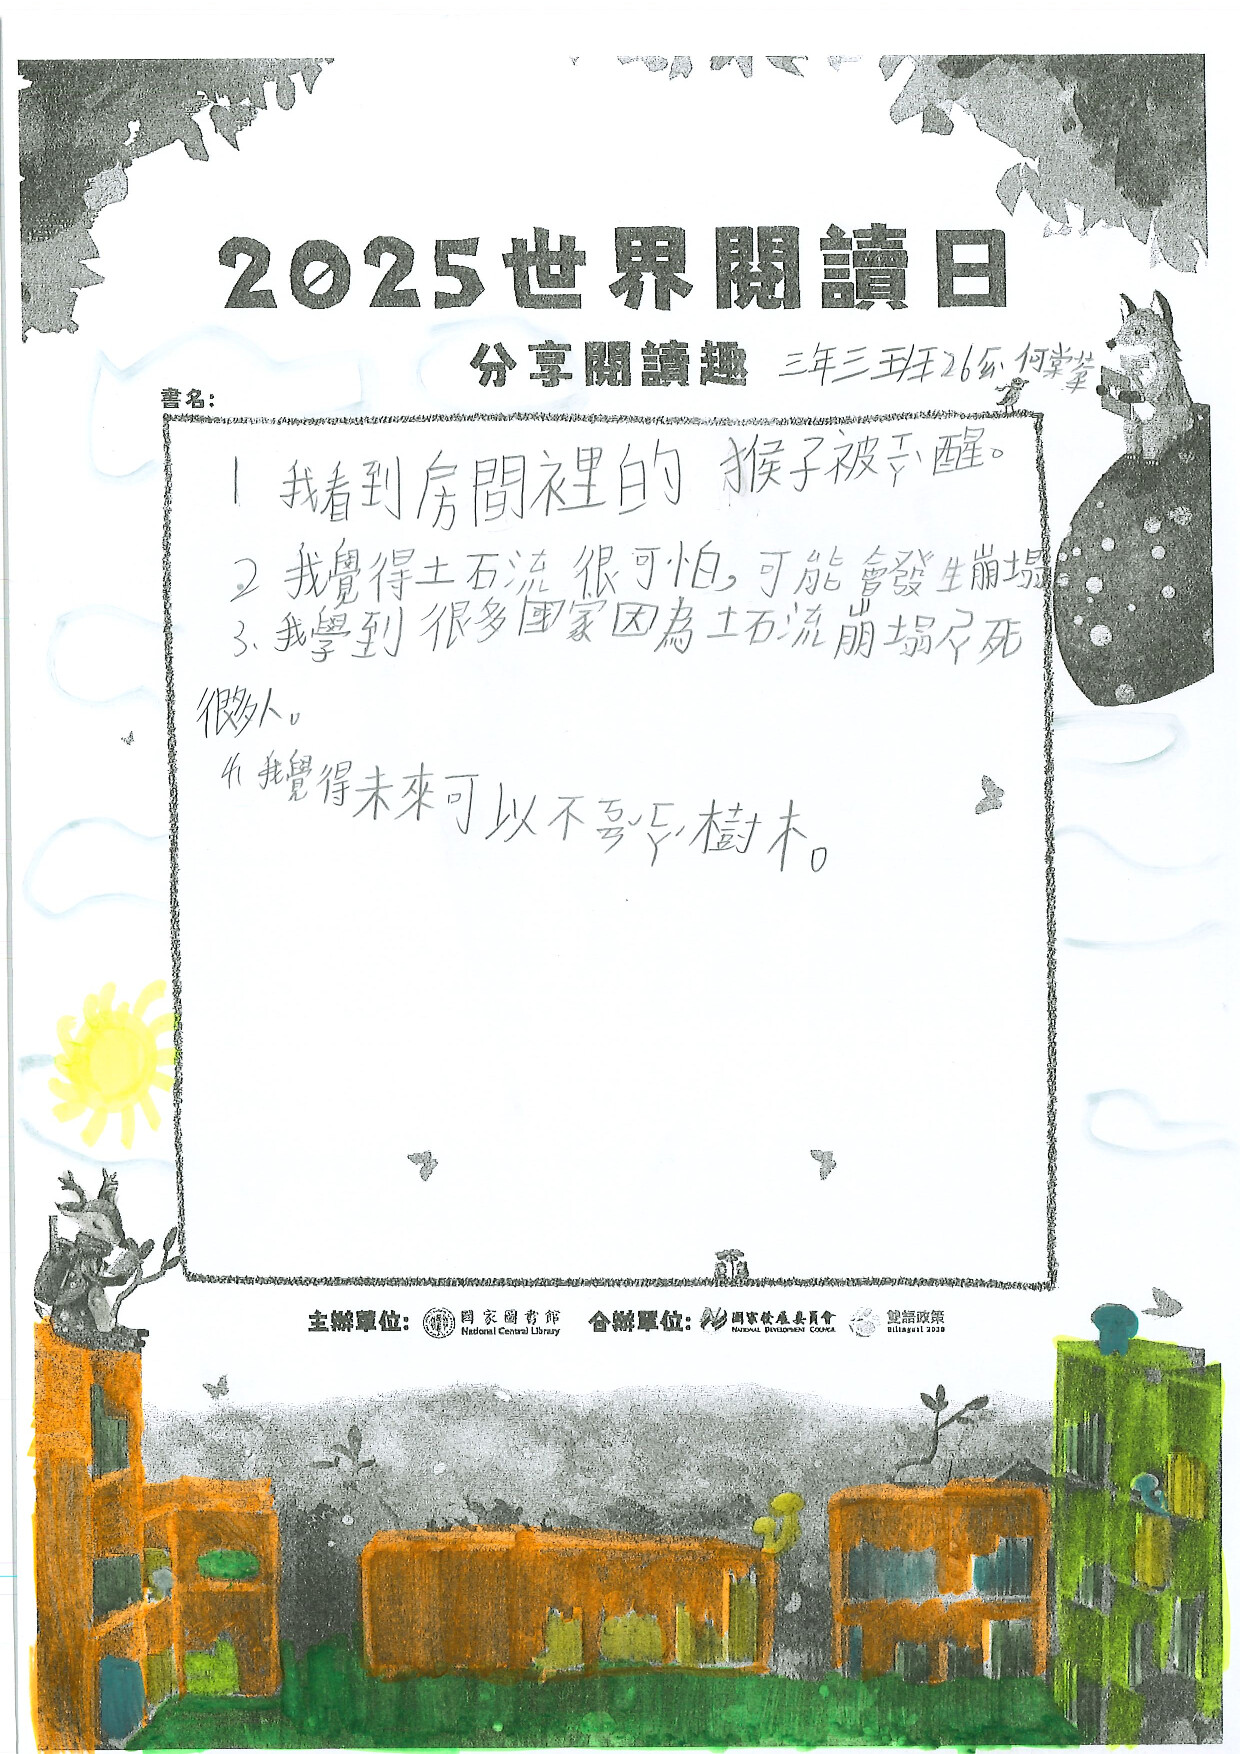 2025世界閱讀日
分享閱讀趣
三年三班26號 何棠
書名:
1 我看到房間裡的 猴子被ㄒㄧㄚˋ醒。
2. 我覺得土石流很可怕,可能會發生崩塌
3. 我學到很多國家因為土石流崩塌ㄕㄚ死
很多人。
4. 我覺得未來可以不ㄌㄢˋㄈㄚˊ樹木。
主辦單位: 國家圖書館 National Central Library 合辦單位: 國家發展委員會 NATIONAL DEVELOPMENT COUNCIL 雙語政策 Bilingual 2030